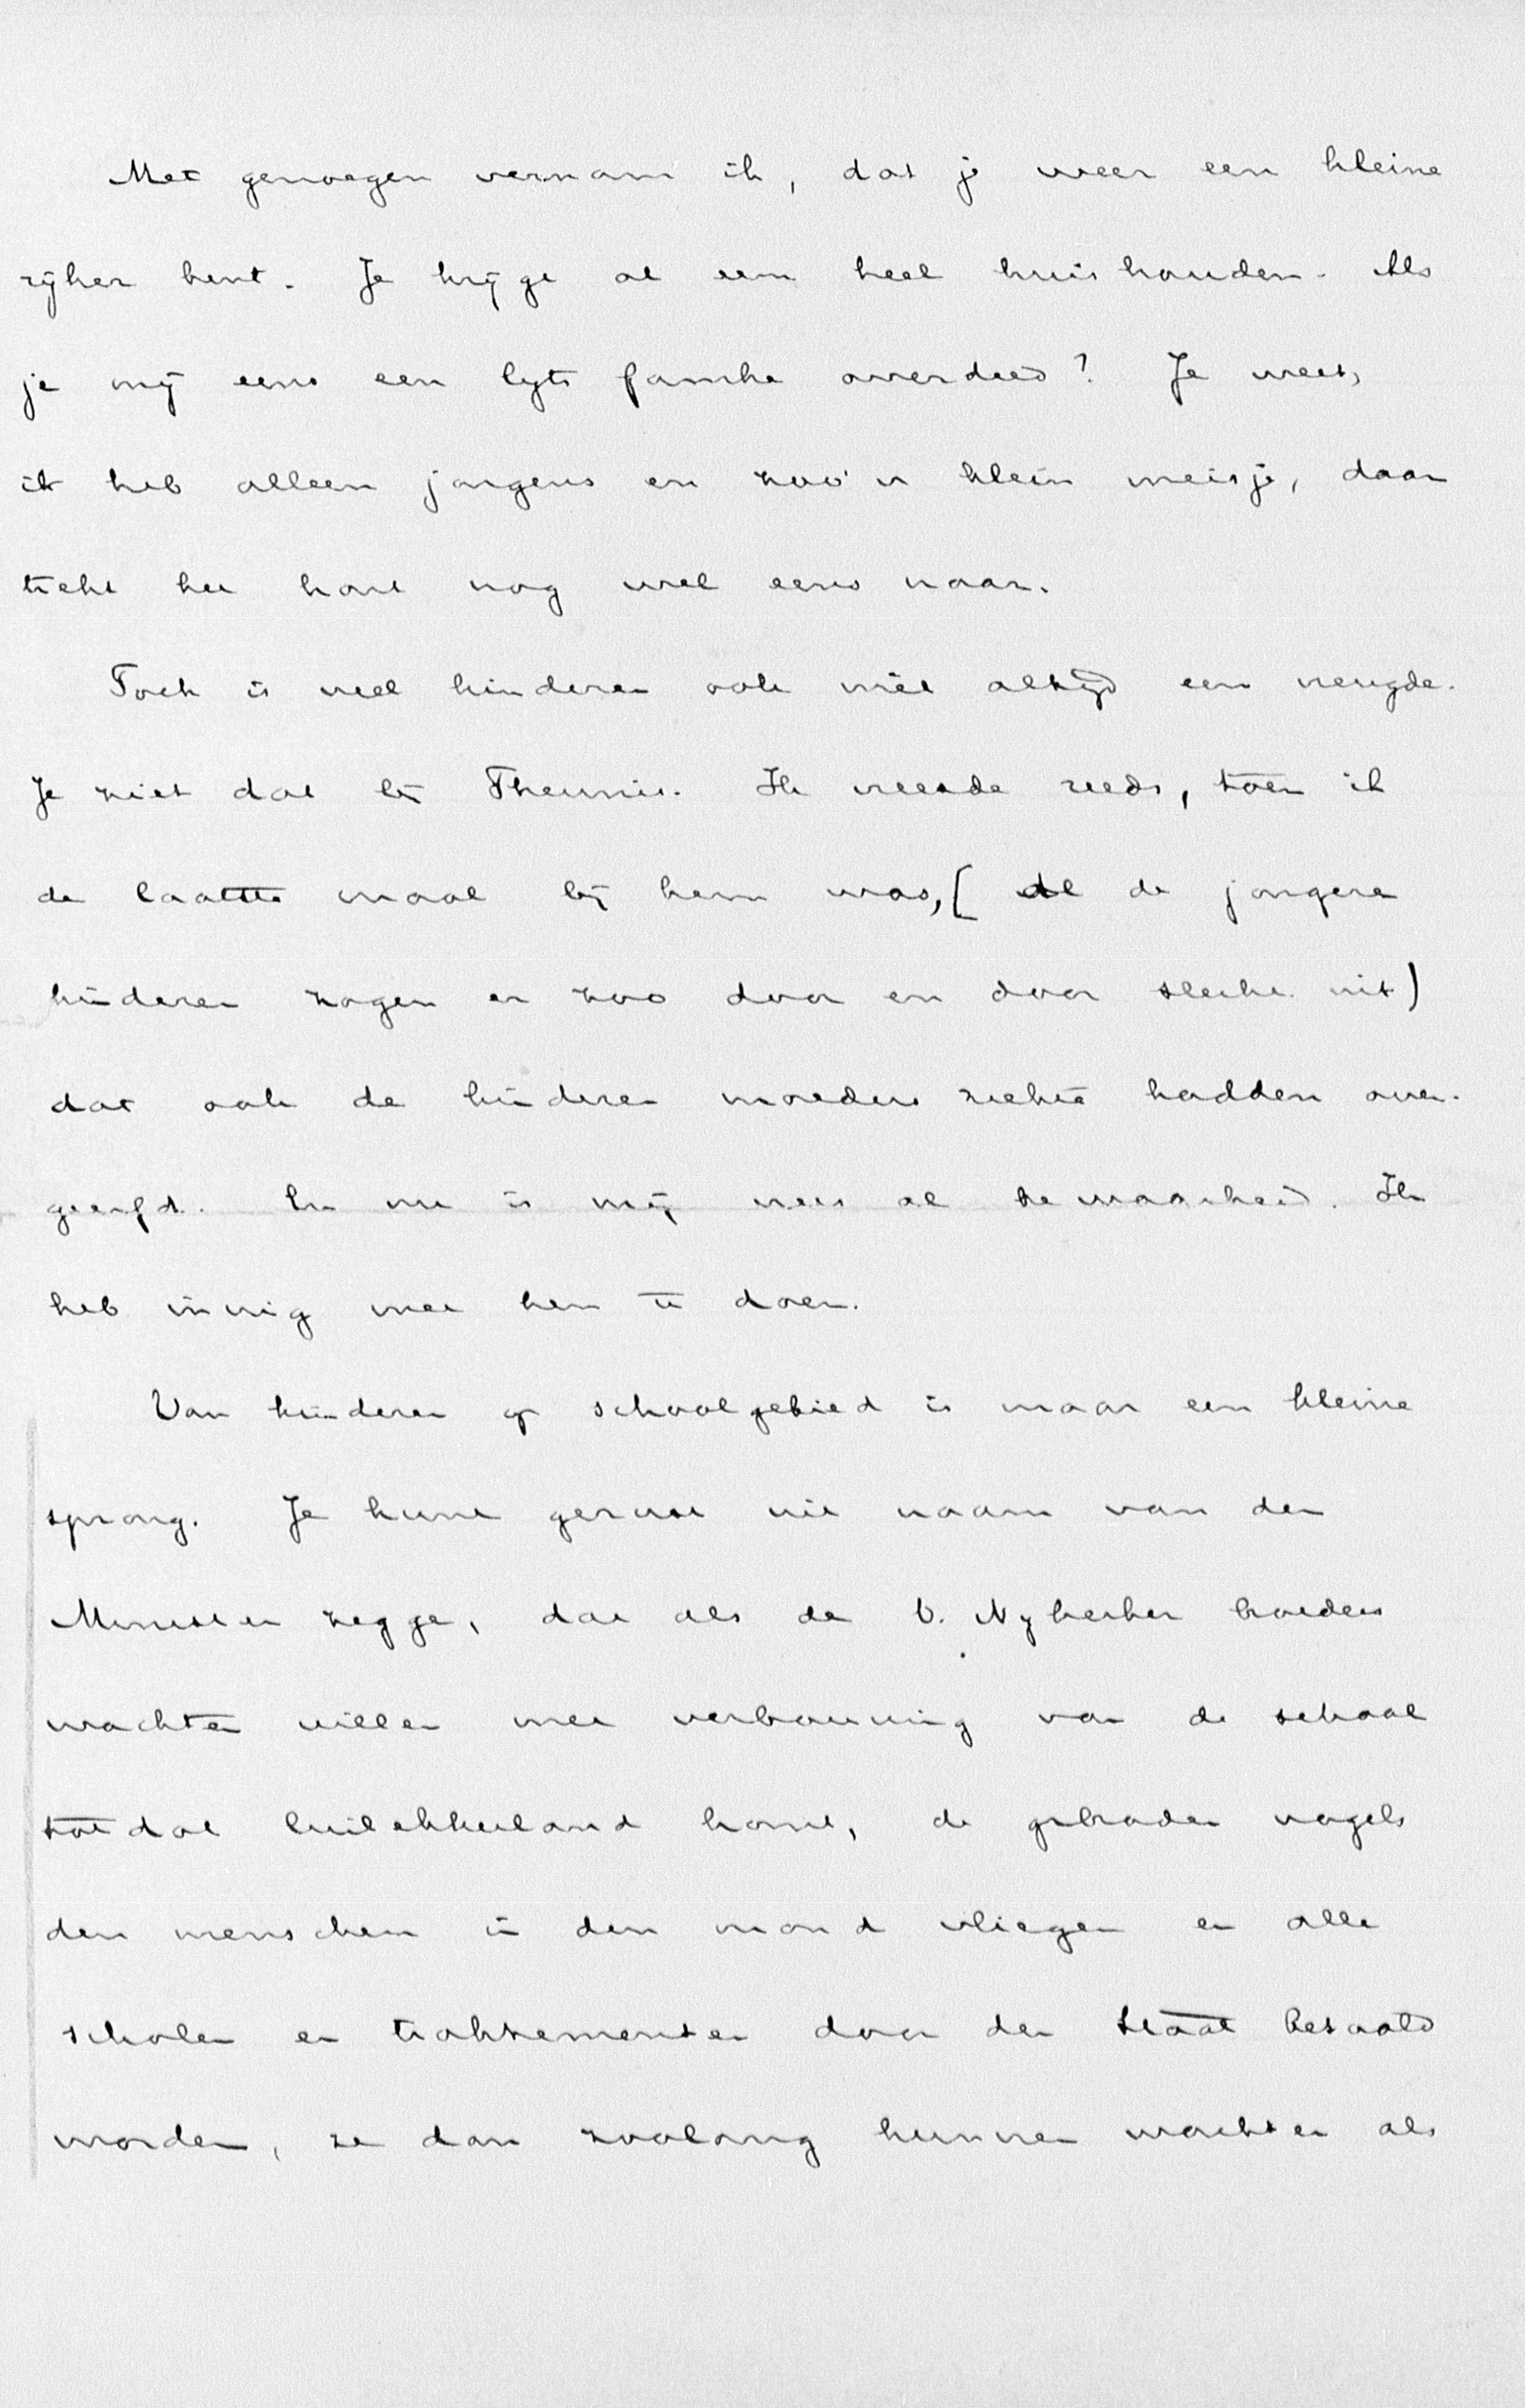 Met genoegen vernam ik, dat je weer een kleine
rijker bent. Je krijgt al een heel huishouden. Als
je mij eens een lyts famke overdeed? Je weet,
ik heb alleen jongens en zoo'n klein meisje, daar
trekt het hart nog wel eens naar.
Toch is veel kinderen ook niet altijd een vreugde.
Je ziet dat bij Theunis. Ik vreesde reeds, toen ik
de laatste maal bij hem was, (al de jongere
kinderen zagen er zoo door en door slecht uit)
dat ook de kinderen moeders ziekte hadden over-
geerfd. En nu is mijn vrees al bewaarheid. Ik
heb innig met hem te doen.
Van kinderen op schoolgebied is maar een kleine
sprong. Je kunt gerust uit naam van den
Minister zeggen, dat als de b. Nijkerker broeders
wachten willen met verbouwing van de school
totdat luilekkerland komt, de gebraden vogels
den menschen in den mond vliegen en alle
scholen en traktementen door den Staat betaald
worden, ze dan zoolang kunnen wachten als